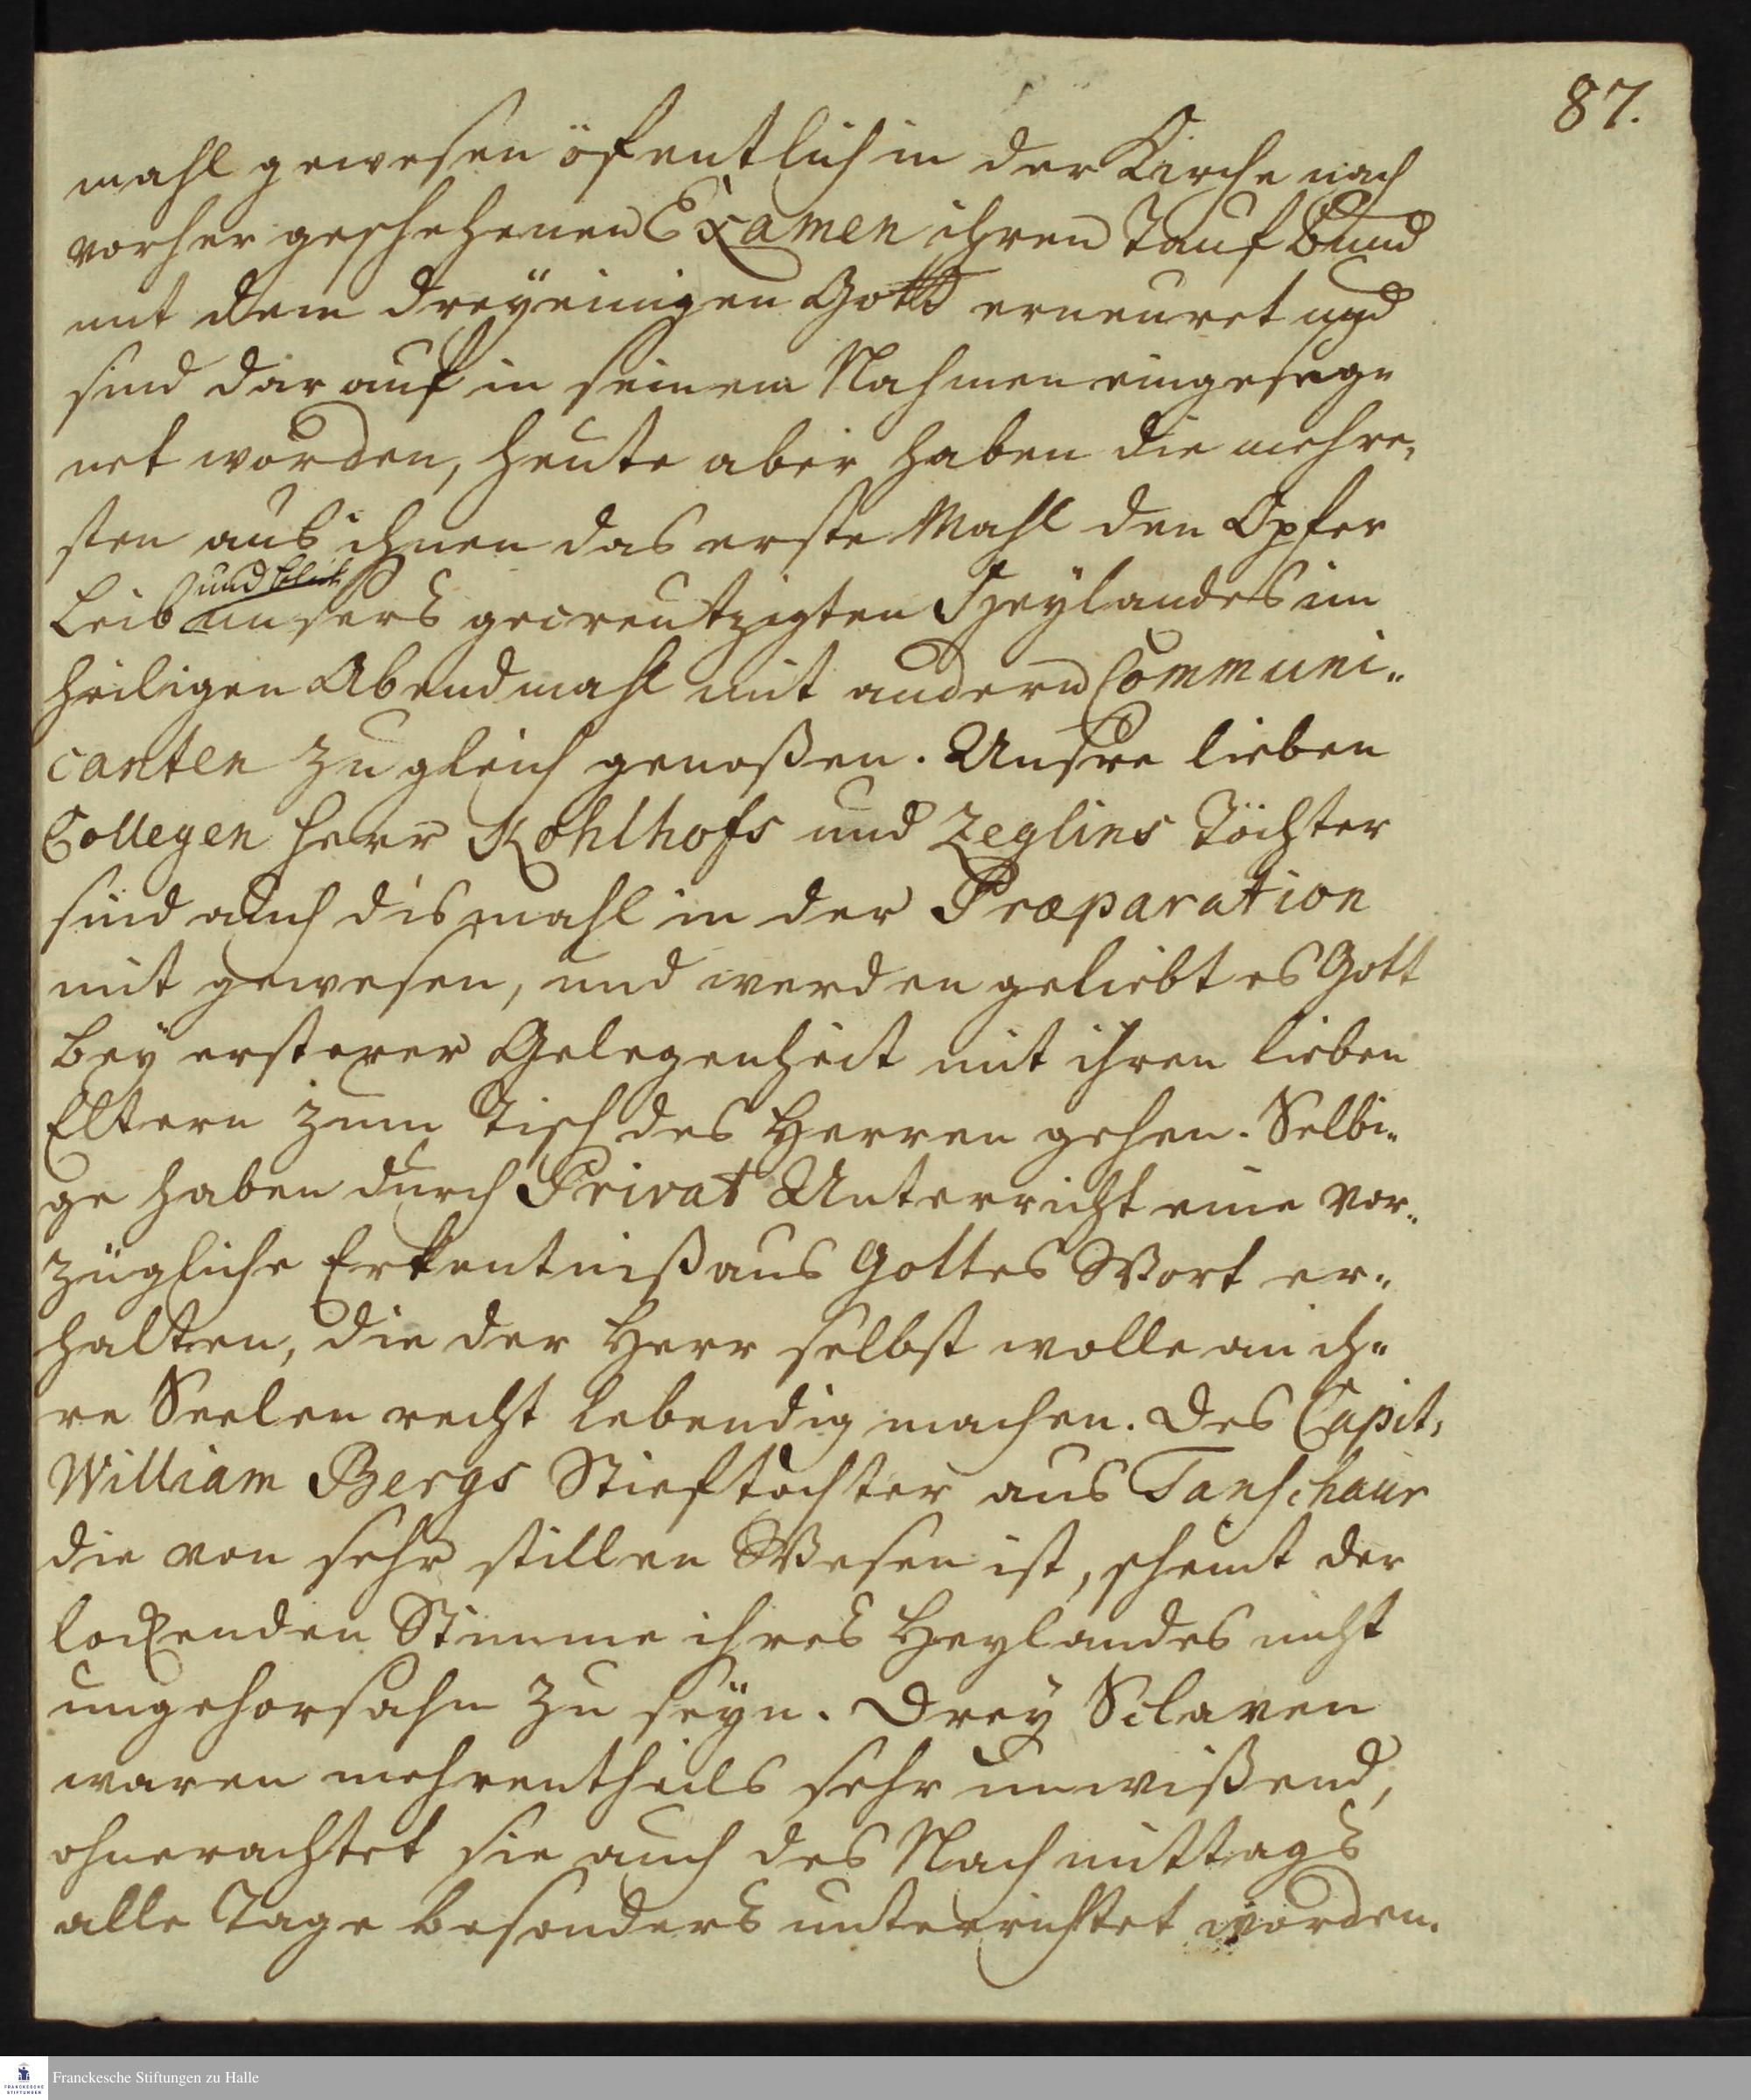 87.
mahl gewesen öfentlich in der Kirche nach
vorher geschehenen Examen ihren Tauf Bund
mit dem dreÿeinigen Gott erneuret und
sind darauf in seinem Nahmen eingeseg=
net worden, heute aber haben die mehre,
sten aus ihnen das erste Mahl den Opfer
und blut
Leib unsers gecreutzigten Heÿlandes im
heiligen Abendmahl mit andern Communi=
canten zugleich genoßen. Unsre lieben
Collegen Herr Kohlhofs und Zeglins Töchter
sind auch dismahl in der Præparation
mit gewesen, und werden geliebt es Gott
beÿ ersterer Gelegenheit mit ihren lieben
Eltern zum Tisch des Herren gehen. Selbi=
ge haben durch Privat Unterricht eine vor=
zügliche Erkentniß aus Gottes Wort er=
halten, die der Herr selbst wolle an ih=
re Seelen recht lebendig machen. Des Capit,
William Bergs Stieftochter aus Tanschaur
die von sehr stillen Wesen ist, scheint der
lockenden Stimme ihres Heylandes nicht
ungehorsahm zu seÿn. Dreÿ Sclaven
waren mehrentheils sehr unwißend,
ohnerachtet sie auch des Nachmittags
alle Tage besonders unterrichtet worden.
Franckesche Stiftungen zu Halle
FRANCKESCHE
STIFTUNGEN